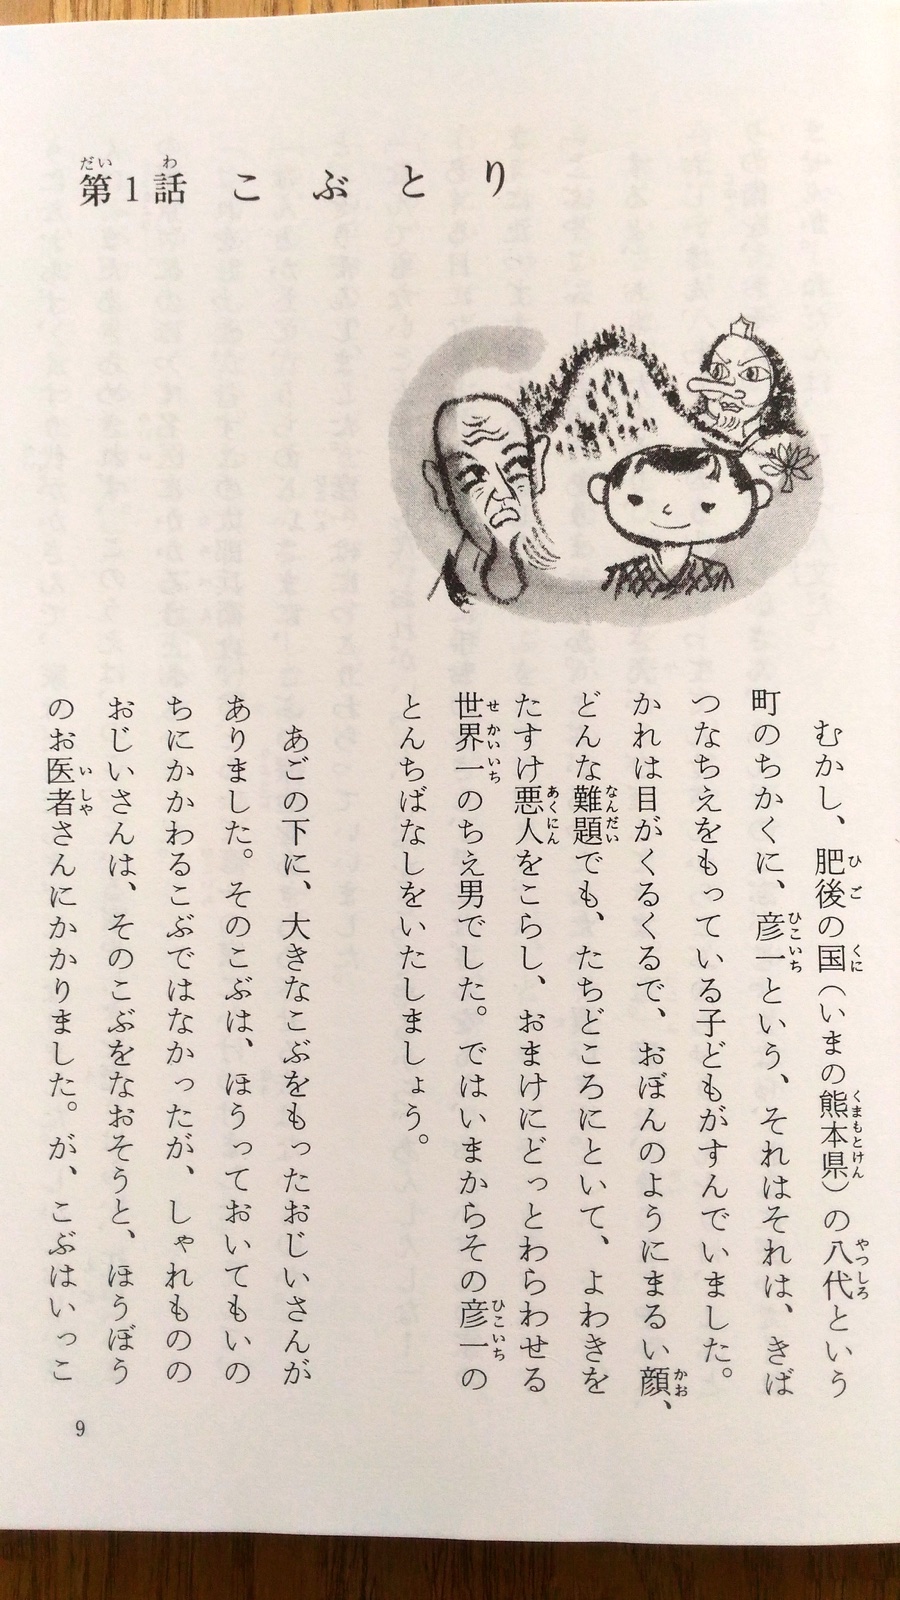 第1話 こぶとり
むかし、肥後の国（いまの熊本県）の八代という
町のちかくに、彦一という、それはそれは、きば
つなちえをもっている子どもがすんでいました。
かれは目がくるくるで、おぼんのようにまるい顔、
どんな難題でも、たちどころにといて、よわきを
たすけ悪人をこらし、おまけにどっとわらわせる
世界一のちえ男でした。ではいまからその彦一の
とんちばなしをいたしましょう。
あごの下に、大きなこぶをもったおじいさんが
ありました。そのこぶは、ほうっておいてもいの
ちにかかわるこぶではなかったが、しゃれものの
おじいさんは、そのこぶをなおそうと、ほうぼう
のお医者さんにかかりました。が、こぶはいっこ
9